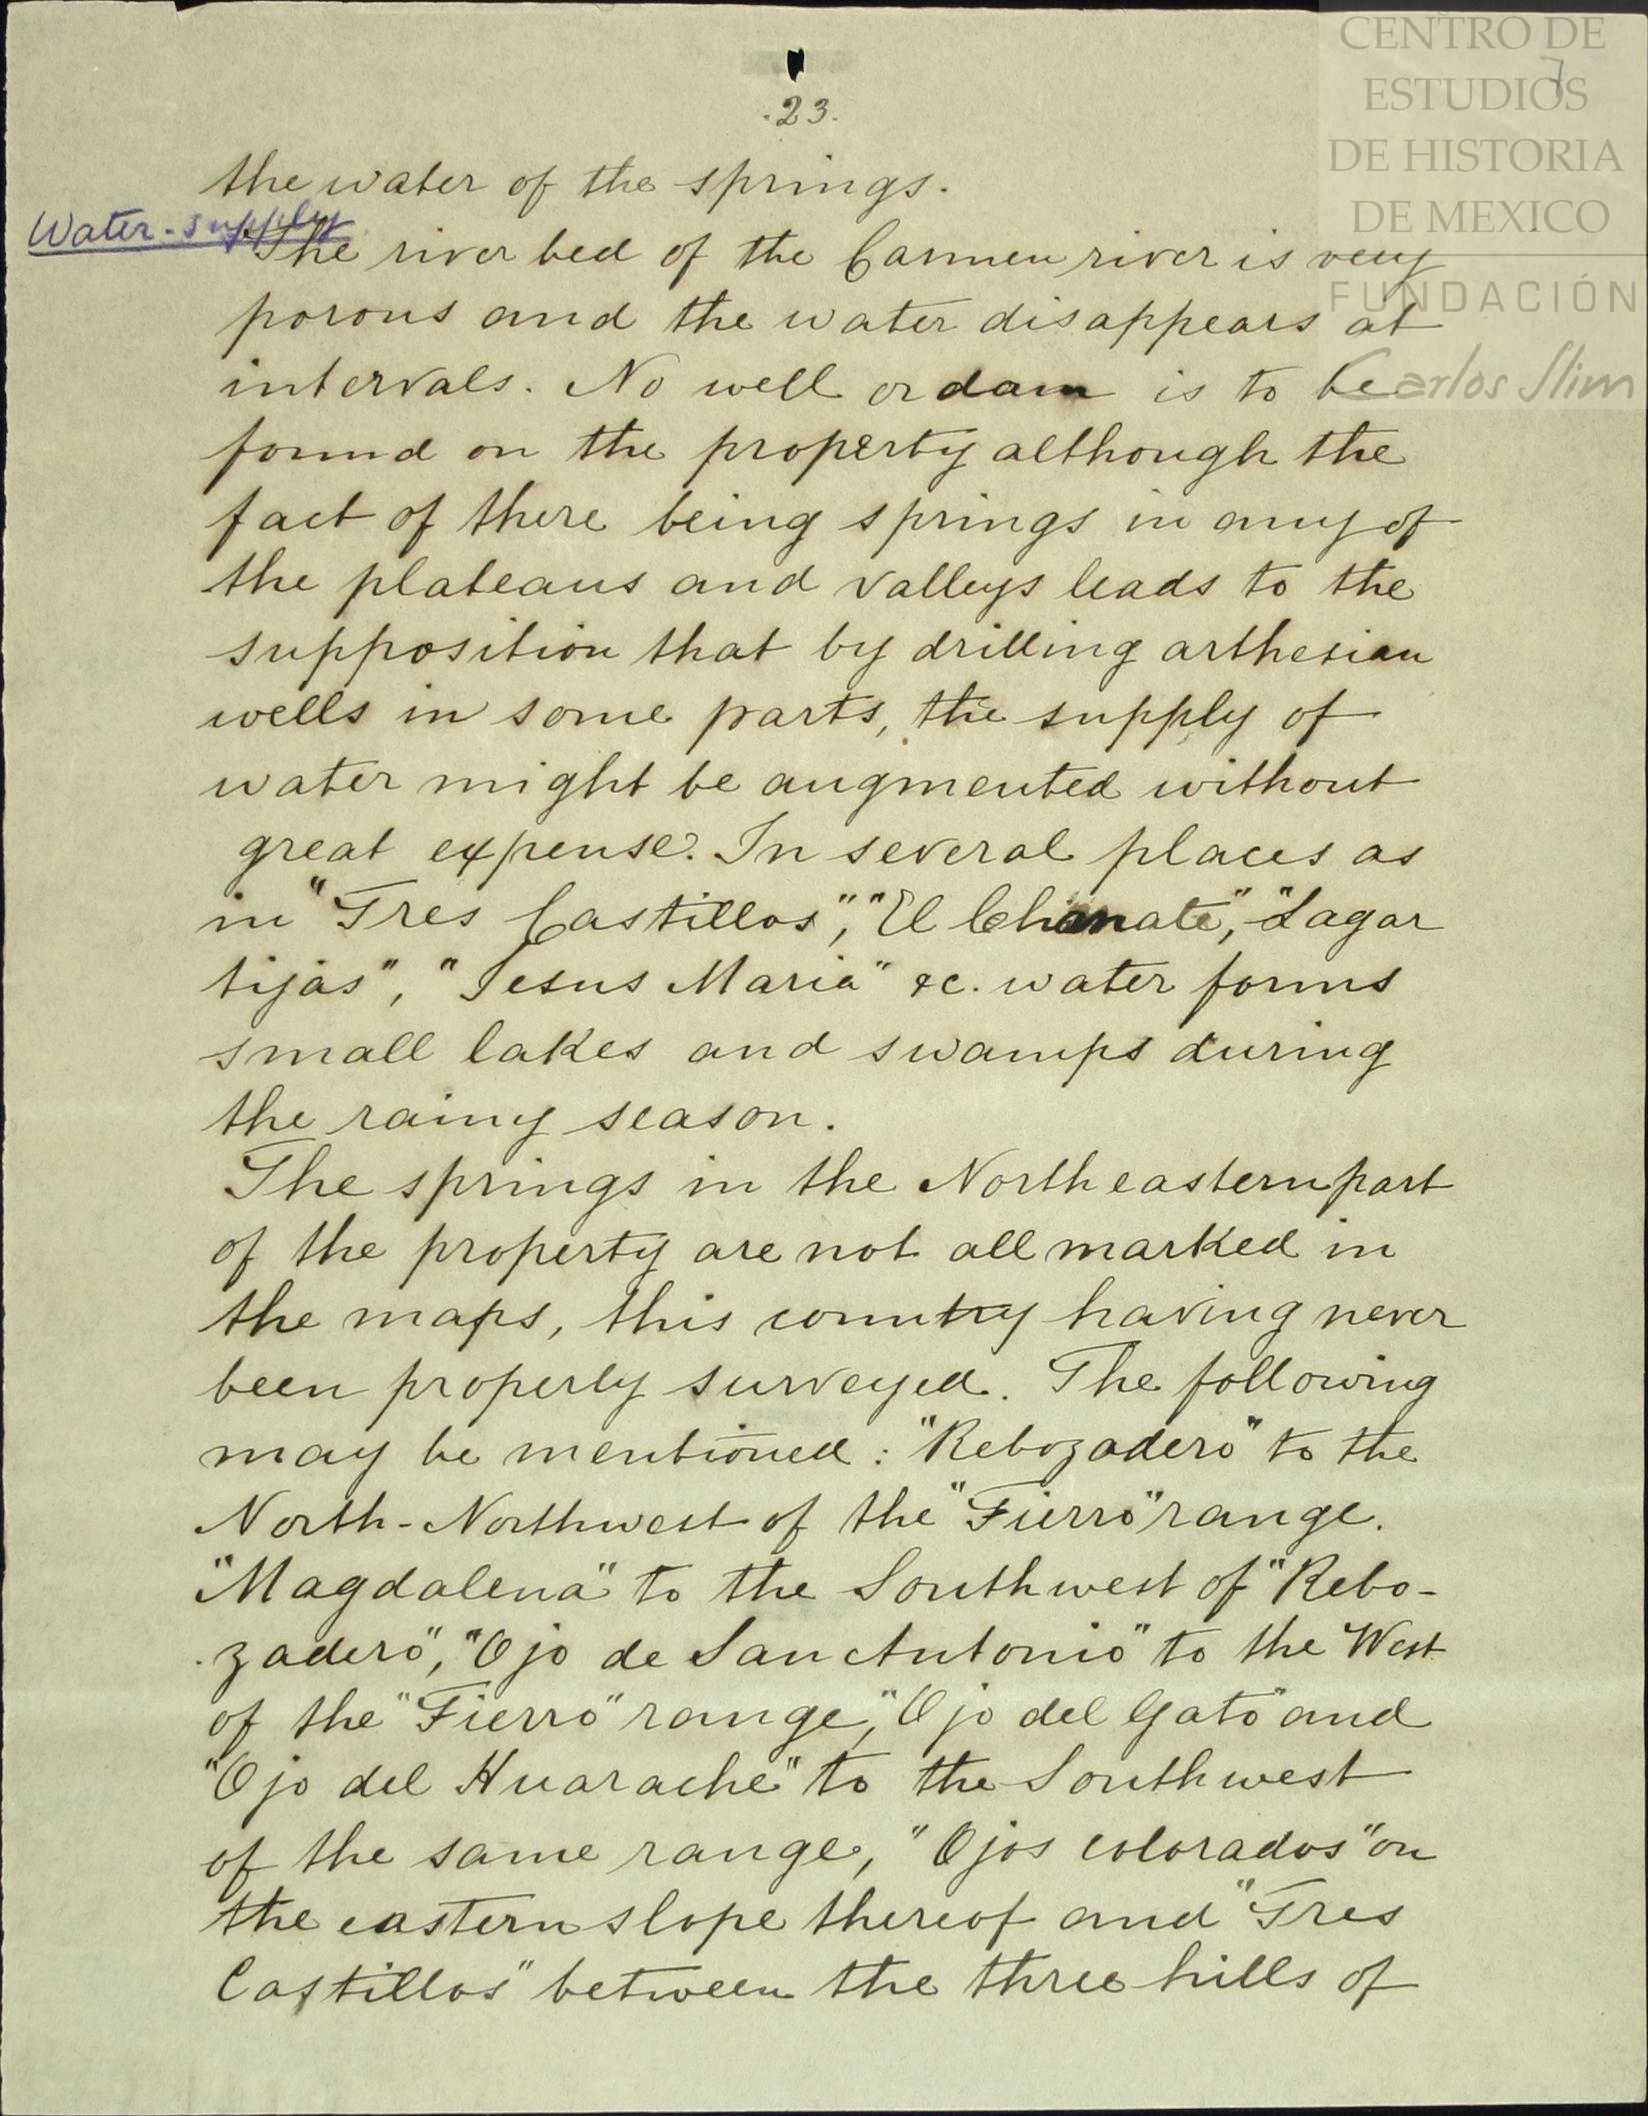 CENTRO DE
ESTUDIOS
DE HISTORIA
DE MEXICO
FUNDACIÓN
Carlos Slim
7
.23.
the water of the springs.
Water-supply
The river bed of the Carmen river is very
porous and the water disappears at
intervals. No well or dam is to be
found on the property although the
fact of there being springs in any of
the plateaus and valleys leads to the
supposition that by drilling arthesian
wells in some parts, the supply of
water might be augmented without
great expense. In several places as
in "Tres Castillos", "El Chanate", "Lagar
tijas", "Jesus Maria" &c. water forms
small lakes and swamps during
the rainy season.
The springs in the North eastern part
of the property are not all marked in
the maps, this country having never
been properly surveyed. The following
may be mentioned: "Rebozadero" to the
North-Northwest of the "Fierro" range.
"Magdalena" to the Southwest of "Rebo-
zadero", "Ojo de San Antonio" to the West
of the "Fierro" range, "Ojo del Gato" and
"Ojo del Huarache" to the Southwest
of the same range, "Ojos colorados" on
the eastern slope thereof and "Tres
Castillos" between the three hills of